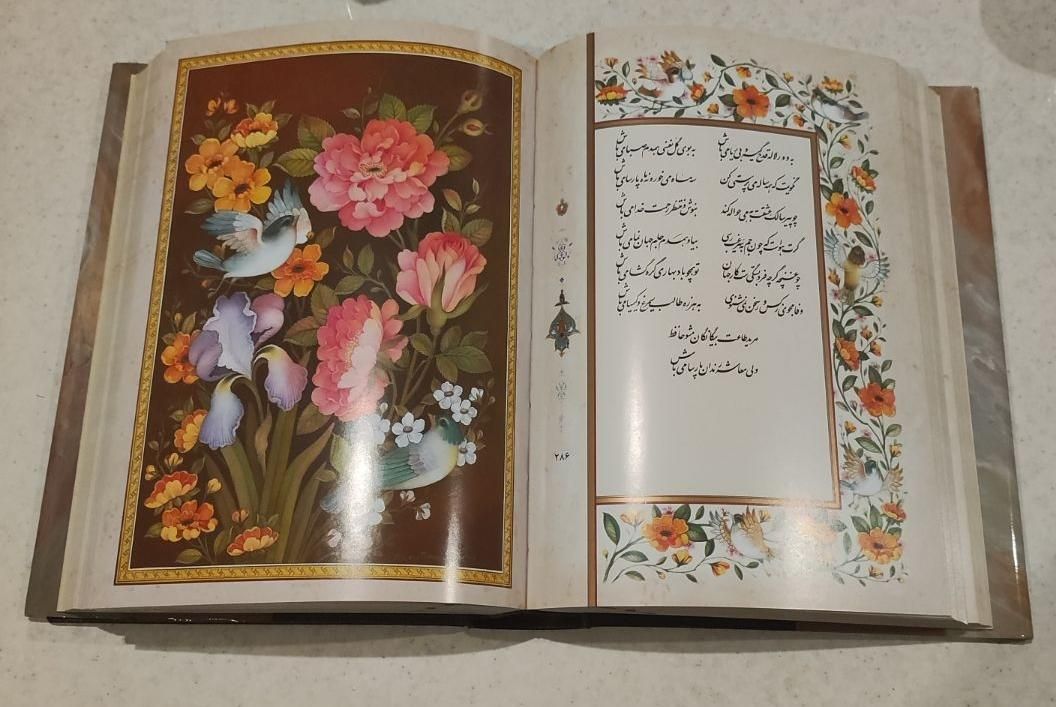 به دور لاله قدح گیر و بی ریا می باش به بوی گل نفسی همدم صبا می باش
نگویمت که همه ساله می پرستی کن سه ماه می خور و نه ماه پارسا می باش
چو پیر سالک عشقت به می حواله کند بنوش و منتظر رحمت خدا می باش
گرت هواست که چون جم به سر غیب رسی بیا و همدم جام جهان نما می باش
چو غنچه گرچه فروبستگی ست کار جهان تو همچو باد بهاری گره گشا می باش
وفا مجوی ز کس ور سخن نمی شنوی به هرزه طالب سیمرغ و کیمیا می باش
مرید طاعت بیگانگان مشو حافظ
ولی معاشر رندان پارسا می باش
۲۸۶